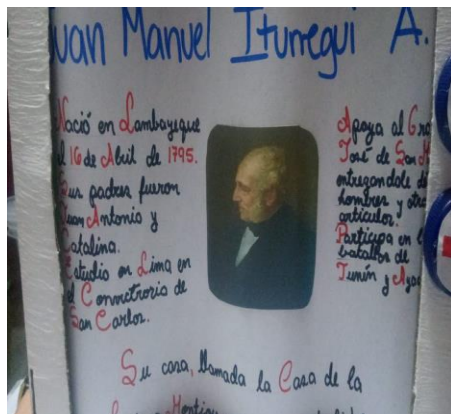 Juan Manuel Iturregui A.
Nació en Lambayeque
el 16 de Abril de 1795.
Sus padres fueron
Juan Antonio y
Catalina.
Estudio en Lima en
el Convictrorio de
San Carlos.
Apoya al
José de San
entregandole
hombres y
articulos.
Participa en
batallas de
Junín y
Su casa, llamada la Casa de la